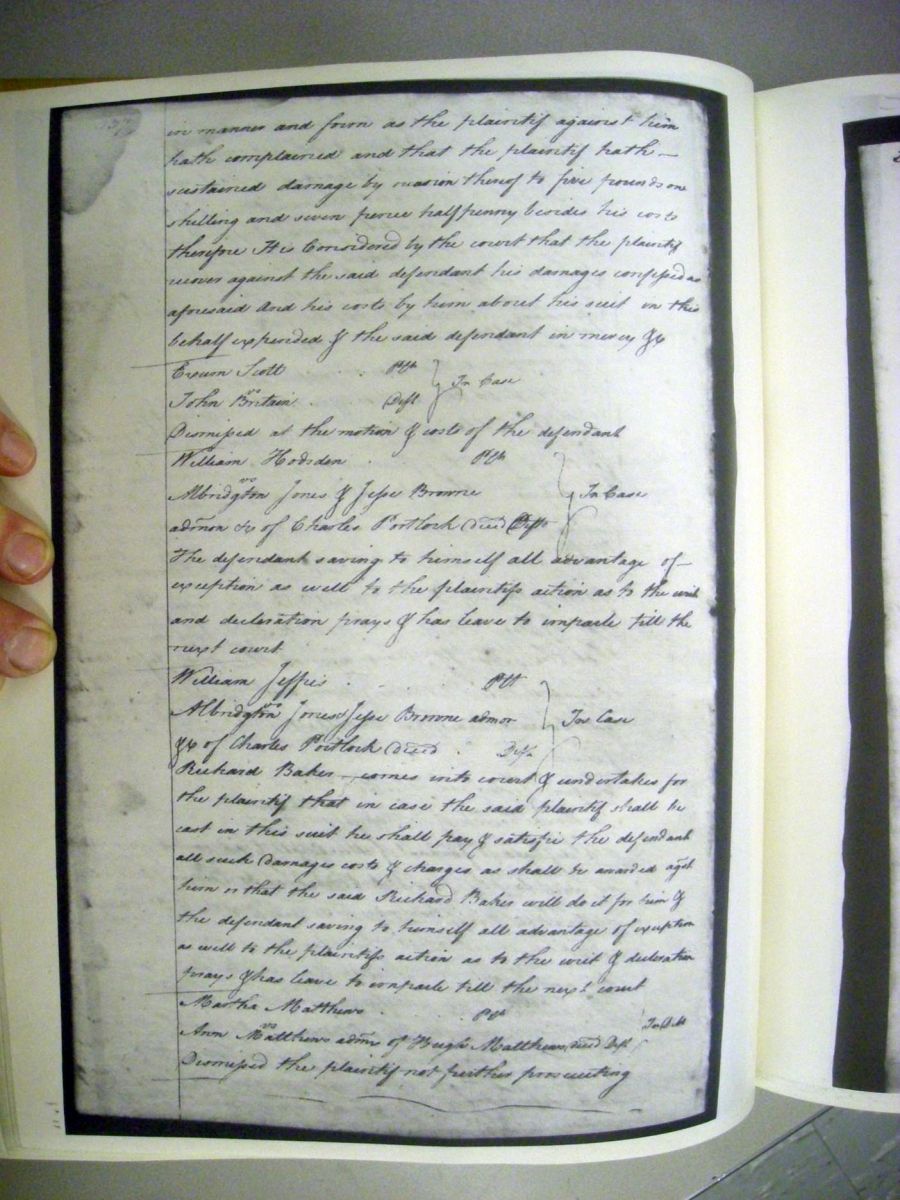 in manner and form as the plaintif against him
hath complained and that the plaintif hath —
sustained damage by reason thereof to five pounds one
shilling and seven pence halfpenny besides his costs
therefore It is Considered by the court that the plaintif
recover against the said defendant his damages confessed as
aforesaid And his costs by him about his suit in this
behalf expended & the said defendant in mercy &c
Exum Scott . . Plt
vs
John Britain . . . Deft
In Case
Dismissed at the motion & costs of the defendant
William Hodsden . Plt
vs
Albridgton Jones & Jesse Browne
In Case
admon &c of Charles Portlock Deced Deft
The defendant saving to himself all advantage of —
exception as well to the plaintifs action as to the writ
and declaration prays & has leave to imparle till the
next court
William Jeffries . . . Plt
vs
Albridgton Jones Jesse Browne admor
In Case
&c of Charles Portlock Deced . Deft
Richard Baker comes into court & undertakes for
the plaintif that in case the said plaintif shall be
cast in this suit he shall pay & satisfie the defendant
all such Damages costs & charges as shall be awarded agst
him or that the said Richard Baker will do it for him &
the defendant saving to himself all advantage of exception
as well to the plaintifs action as to the writ & declaration
prays & has leave to imparle till the next court
Martha Matthews . . . Plt
vs
In Debt
Ann Matthews admr of Hugh Matthews deced Deft
Dismissed the plaintif not further prosecuting